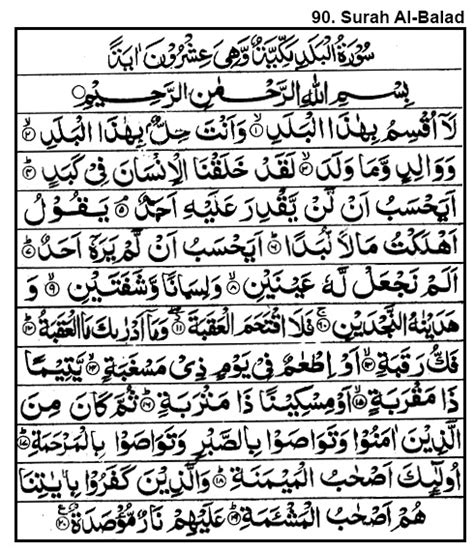 90. Surah Al-Balad
سُوْرَةُ الْبَلَدِ مَكِّيَّةٌ وَّهِيَ عِشْرُوْنَ اٰيَةً
بِسْمِ اللهِ الرَّحْمٰنِ الرَّحِيْمِ ○
لَآ اُقْسِمُ بِهٰذَا الْبَلَدِ ۱ وَاَنْتَ حِلٌّۢ بِهٰذَا الْبَلَدِ ۲
وَوَالِدٍ وَّمَا وَلَدَ ۳ لَقَدْ خَلَقْنَا الْاِنْسَانَ فِيْ كَبَدٍ ۴
اَيَحْسَبُ اَنْ لَّنْ يَّقْدِرَ عَلَيْهِ اَحَدٌ ۵ يَقُوْلُ
اَهْلَكْتُ مَالًا لُّبَدًا ۶ اَيَحْسَبُ اَنْ لَّمْ يَرَهٗٓ اَحَدٌ ۷
اَلَمْ نَجْعَلْ لَّهٗ عَيْنَيْنِ ۸ وَلِسَانًا وَّشَفَتَيْنِ ۹ وَ
هَدَيْنٰهُ النَّجْدَيْنِ ۱۰ فَلَا اقْتَحَمَ الْعَقَبَةَ ۱۱ وَمَآ اَدْرٰىكَ مَا الْعَقَبَةُ ۱۲
فَكُّ رَقَبَةٍ ۱۳ اَوْ اِطْعٰمٌ فِيْ يَوْمٍ ذِيْ مَسْغَبَةٍ ۱۴ يَّتِيْمًا
ذَا مَقْرَبَةٍ ۱۵ اَوْ مِسْكِيْنًا ذَا مَتْرَبَةٍ ۱۶ ثُمَّ كَانَ مِنَ
الَّذِيْنَ اٰمَنُوْا وَتَوَاصَوْا بِالصَّبْرِ وَتَوَاصَوْا بِالْمَرْحَمَةِ ۱۷
اُولٰٓئِكَ اَصْحٰبُ الْمَيْمَنَةِ ۱۸ وَالَّذِيْنَ كَفَرُوْا بِاٰيٰتِنَا
هُمْ اَصْحٰبُ الْمَشْـَٔمَةِ ۱۹ عَلَيْهِمْ نَارٌ مُّؤْصَدَةٌ ۲۰